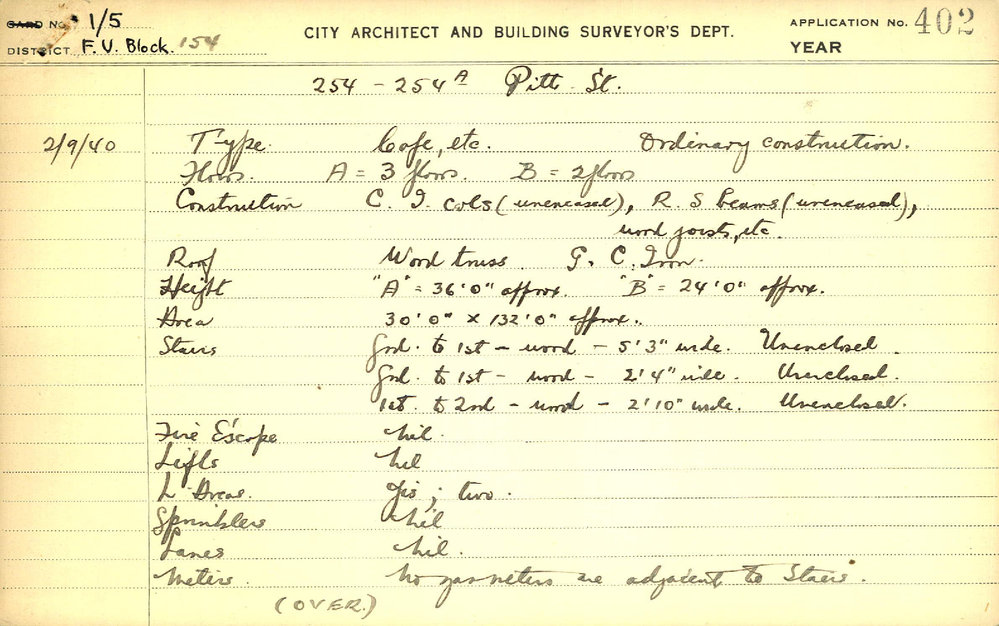 CARD No. 1/5 CITY ARCHITECT AND BUILDING SURVEYOR'S DEPT. APPLICATION No. 402
DISTRICT F.U. Block. 154 YEAR
254 - 254A Pitt St.
2/9/40 Type. Cafe, etc. Ordinary construction.
Floors. A = 3 floors. B = 2 floors
Construction C. I. cols (unencased), R. S beams (unencased),
wood joists, etc.
Roof Wood truss. G. C. Iron.
Height "A" = 36'0" approx. "B" = 24'0" approx.
Area 30'0" x 132'0" approx.
Stairs Grd. to 1st - wood - 5'3" wide. Unenclosed.
Grd. to 1st - wood - 2'4" wide. Unenclosed.
1st. to 2nd - wood - 2'10" wide. Unenclosed.
Fire Escape Nil.
Lifts Nil
L. Areas. Yes; two.
Sprinklers Nil
Lanes Nil.
Meters. No gas meters are adjacent to Stairs.
(OVER.)